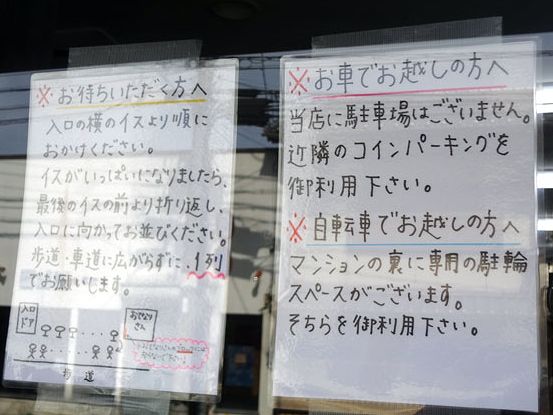 ※ お待ちいただく方へ
入口の横のイスより順に
おかけください。
イスがいっぱいになりましたら、
最後のイスの前より折り返し、
入口に向かってお並びください。
歩道・車道に広がらずに、1列
でお願いします。
入口
ドア
おとなり
さん
歩道
※ お車でお越しの方へ
当店に駐車場はございません。
近隣のコインパーキングを
御利用下さい。
※ 自転車でお越しの方へ
マンションの裏に専用の駐輪
スペースがございます。
そちらを御利用下さい。